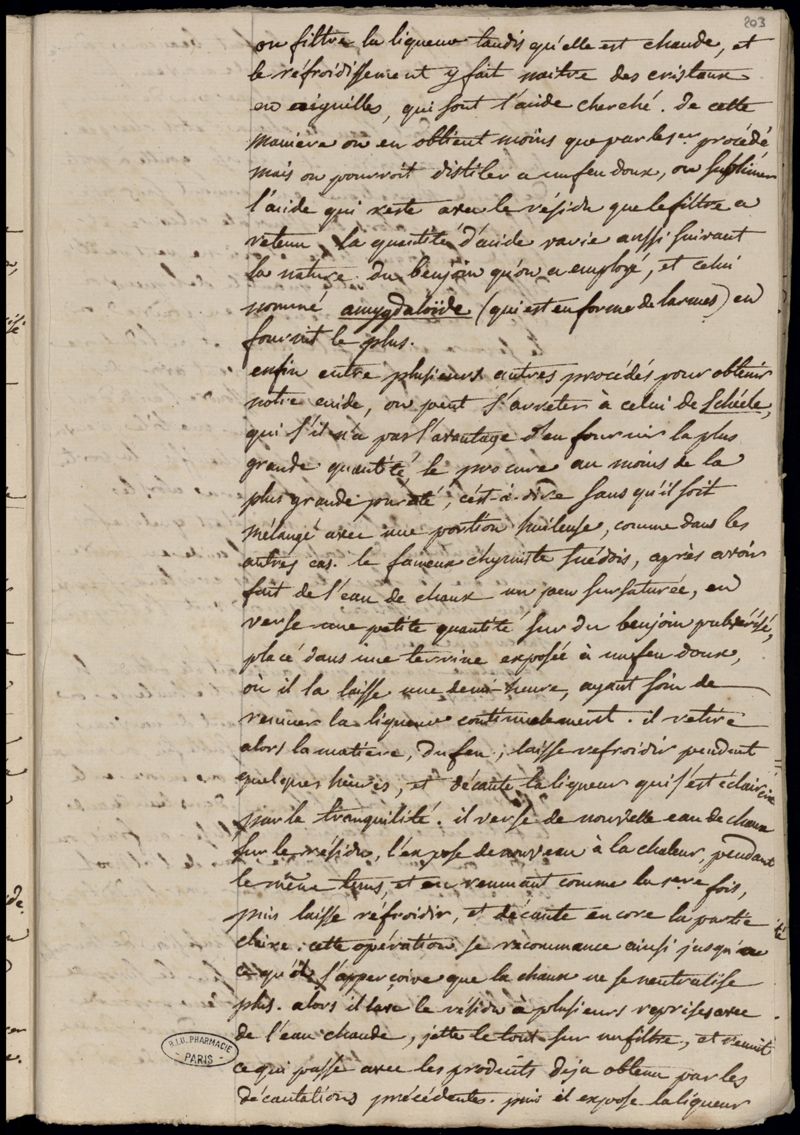 203
on filtre la liqueur tandis qu'elle est chaude, et
le réfroidissement y fait naitre des cristaux
en aiguilles, qui sont l'acide cherché. de cette
maniere on en obtient moins que par les 1er procédé
mais on pourroit distiler a un feu doux, ou sublimer
l'acide qui reste avec le résidu que le filtre a
retenu. la quantité d'acide varie aussi suivant
la nature du benjoin qu'on a employé, et celui
nommé amygdaloïde (qui est en forme de larmes) en
fournit le plus.
enfin entre plusieurs autres procédés pour obtenir
notre acide, on peut s'arrêter à celui de Schéele,
qui s'il n'a pas l'avantage d'en fournir la plus
grande quantité, le procure au moins de la
plus grande pureté, c'est-à-dire sans qu'il soit
mélangé avec une portion huileuse, comme dans les
autres cas. le fameux chymiste suédois, après avoir
fait de l'eau de chaux un peu sursaturée, en
verse une petite quantité sur du benjoin pulvérisé,
placé dans une terrine exposée à un feu doux,
où il la laisse une demi-heure, ayant soin de
remuer la liqueur continuelement. il retire
alors la matiere, du feu, laisse refroidir pendant
quelques heures, et décante la liqueur qui s'est éclaircie
par la tranquilité. il verse de nouvelle eau de chaux
sur le résidu, l'expose de nouveau à la chaleur, pendant
le même tems, et en remuant comme la 1ere fois,
puis laisse réfroidir, et décante encore la partie
claire: cette opération se recommance ainsi jusqu'a
ce qu'il s'apperçoive que la chaux ne se neutralise
plus. alors il lave le résidu à plusieurs reprises avec
de l'eau chaude, jette le tout sur un filtre, et réunit
ce qui passe avec les produits deja obtenu par les
décantations précédentes. puis il expose la liqueur
B.I.U. PHARMACIE
PARIS